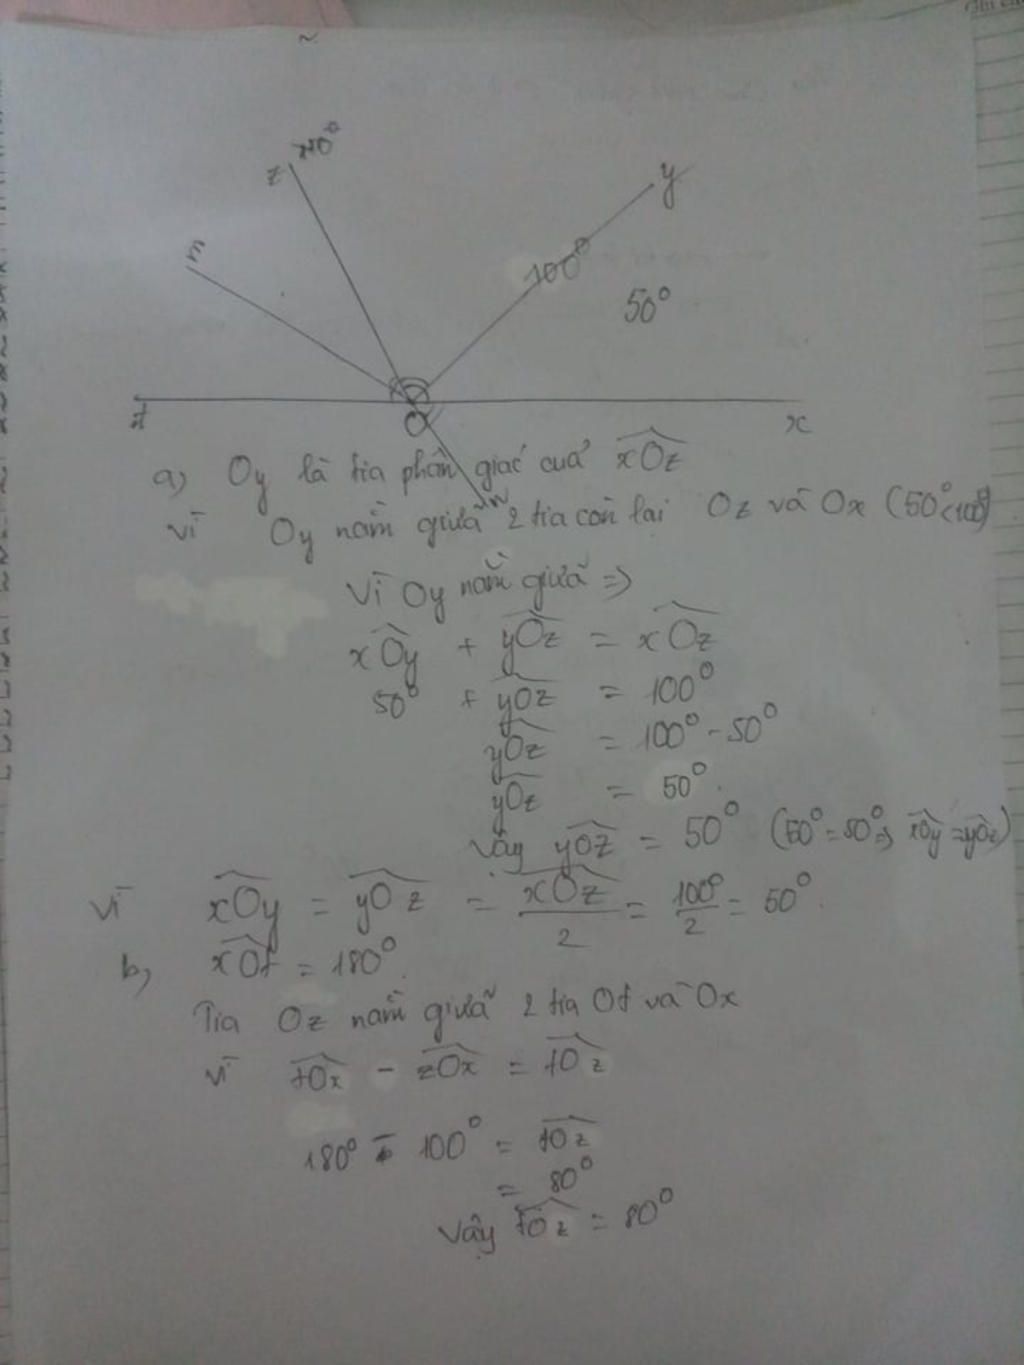 z
m
y
100⁰
50⁰
t
O
x
n
a) Oy là tia phân giác của xOz
vì Oy nằm giữa 2 tia còn lại Oz và Ox (50⁰<100⁰)
Vì Oy nằm giữa =>
xOy + yOz = xOz
50⁰ + yOz = 100⁰
yOz = 100⁰ - 50⁰
yOz = 50⁰.
Vậy yOz = 50⁰ (50⁰ = 50⁰ => xOy = yOz)
Vì xOy = yOz = xOz/2 = 100⁰/2 = 50⁰.
b) xOt = 180⁰.
Tia Oz nằm giữa 2 tia Ot và Ox
vì tOx - zOx = tOz
180⁰ - 100⁰ = tOz
= 80⁰
Vậy tOz = 80⁰